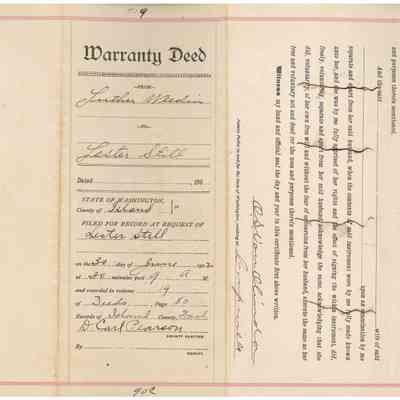 9
Warranty Deed
FROM
Luther Weedin
TO
Lester Still
Dated 190
STATE OF WASHINGTON,
County of Island
FILED FOR RECORD AT REQUEST OF
Lester Still
on day of June 190
at minutes past 9 A
and recorded in volume 19
of Deeds Page 80
Records of Island County, Wash
D. Carl Pearson
COUNTY AUDITOR
By
DEPUTY.
902
and purposes therein mentioned.
And that
wife of said
upon an examination by me
separate and apart from her said husband, when the contents of said instrument were by me fully made known
unto her, and she was by me fully apprised of her rights and the effect of signing the within instrument, did,
freely, voluntarily, separate and apart from her said husband acknowledge the same, acknowledging that she
did, voluntarily, of her own free will and without the fear of or coercion from her husband, execute the same as her
free and voluntary act and deed for the uses and purposes therein mentioned.
Witness my hand and official seal the day and year in this certificate first above written.
Notary Public in and for the State of Washington, residing at Coupeville